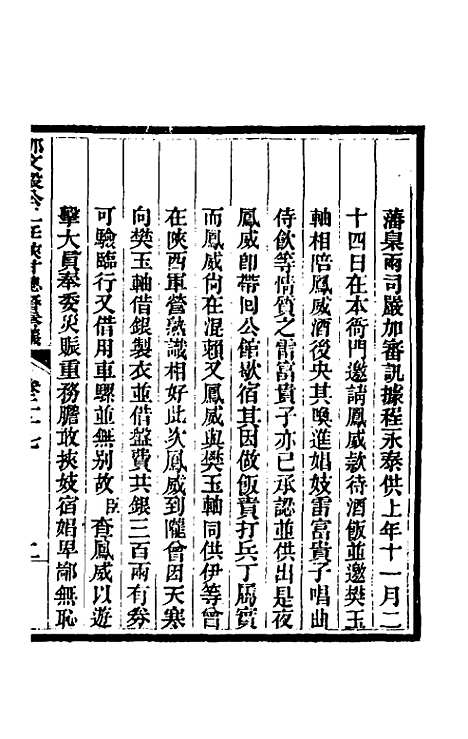 藩臬兩司嚴加審訊據程永泰供上年十一月二
十四日在本衙門邀請鳳威款待酒飯並邀樊玉
軸相陪鳳威酒後央其喚進娼妓雷富貴子唱曲
侍飲等情質之雷富貴子亦已承認並供出是夜
鳳威卽帶回公館歇宿其因做飯責打兵丁屬實
而鳳威尙在混賴又鳳威與樊玉軸同供伊等曾
在陝西軍營熟識相好此次鳳威到隴會因天寒
向樊玉軸借銀製衣並借盤費共銀三百兩有劵
可驗臨行又借用車騾並無別故臣查鳳威以遊
擊大員奉委災賑重務膽敢挾妓宿娼卑鄙無恥
那文毅公二任陝甘總督奏議
卷二十七